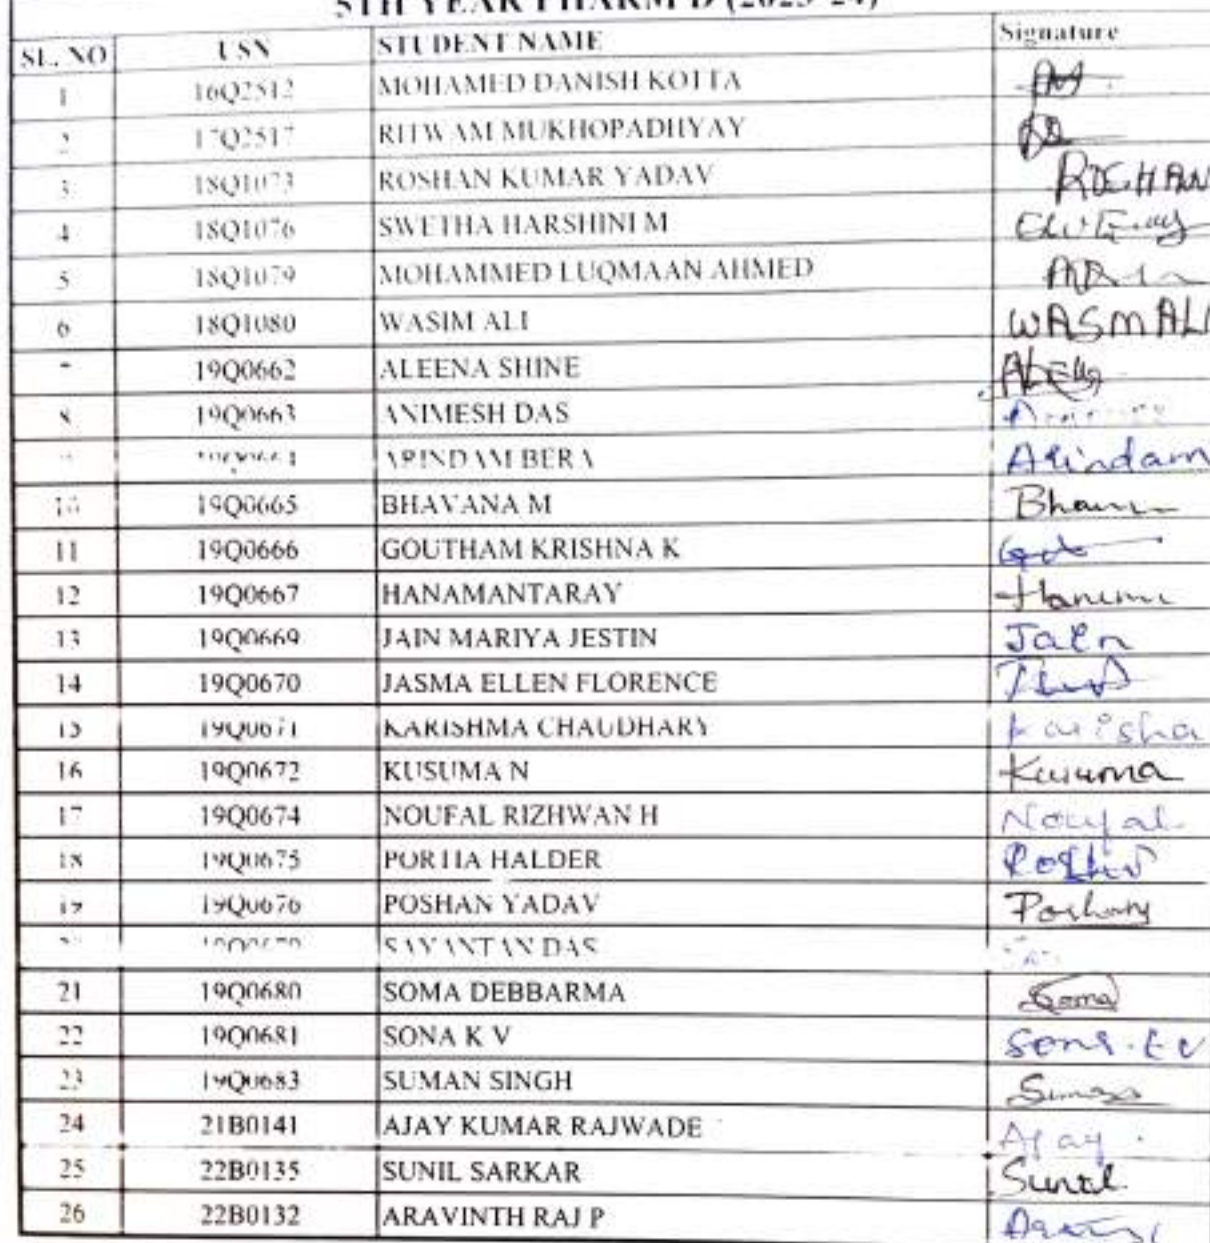 5TH YEAR PHARM D (2023-24)
SL. NO USN STUDENT NAME Signature
1 16Q2512 MOHAMED DANISH KOTTA
2 17Q2517 RITWAM MUKHOPADHYAY
3 18Q1073 ROSHAN KUMAR YADAV ROSHAN
4 18Q1076 SWETHA HARSHINI M
5 18Q1079 MOHAMMED LUQMAAN AHMED
6 18Q1080 WASIM ALI WASMALI
7 19Q0662 ALEENA SHINE
8 19Q0663 ANIMESH DAS
ARINDAM BERA Arindam
10 19Q0665 BHAVANA M
11 19Q0666 GOUTHAM KRISHNA K
12 19Q0667 HANAMANTARAY
13 19Q0669 JAIN MARIYA JESTIN Jain
14 19Q0670 JASMA ELLEN FLORENCE
15 19Q0671 KARISHMA CHAUDHARY Karisha
16 19Q0672 KUSUMA N Kusuma
17 19Q0674 NOUFAL RIZHWAN H Noufal
18 19Q0675 PORTIA HALDER
19 19Q0676 POSHAN YADAV
SAYANTAN DAS
21 19Q0680 SOMA DEBBARMA Soma
22 19Q0681 SONA K V Sona. K V
23 19Q0683 SUMAN SINGH
24 21B0141 AJAY KUMAR RAJWADE Ajay
25 22B0135 SUNIL SARKAR Sunil
26 22B0132 ARAVINTH RAJ P